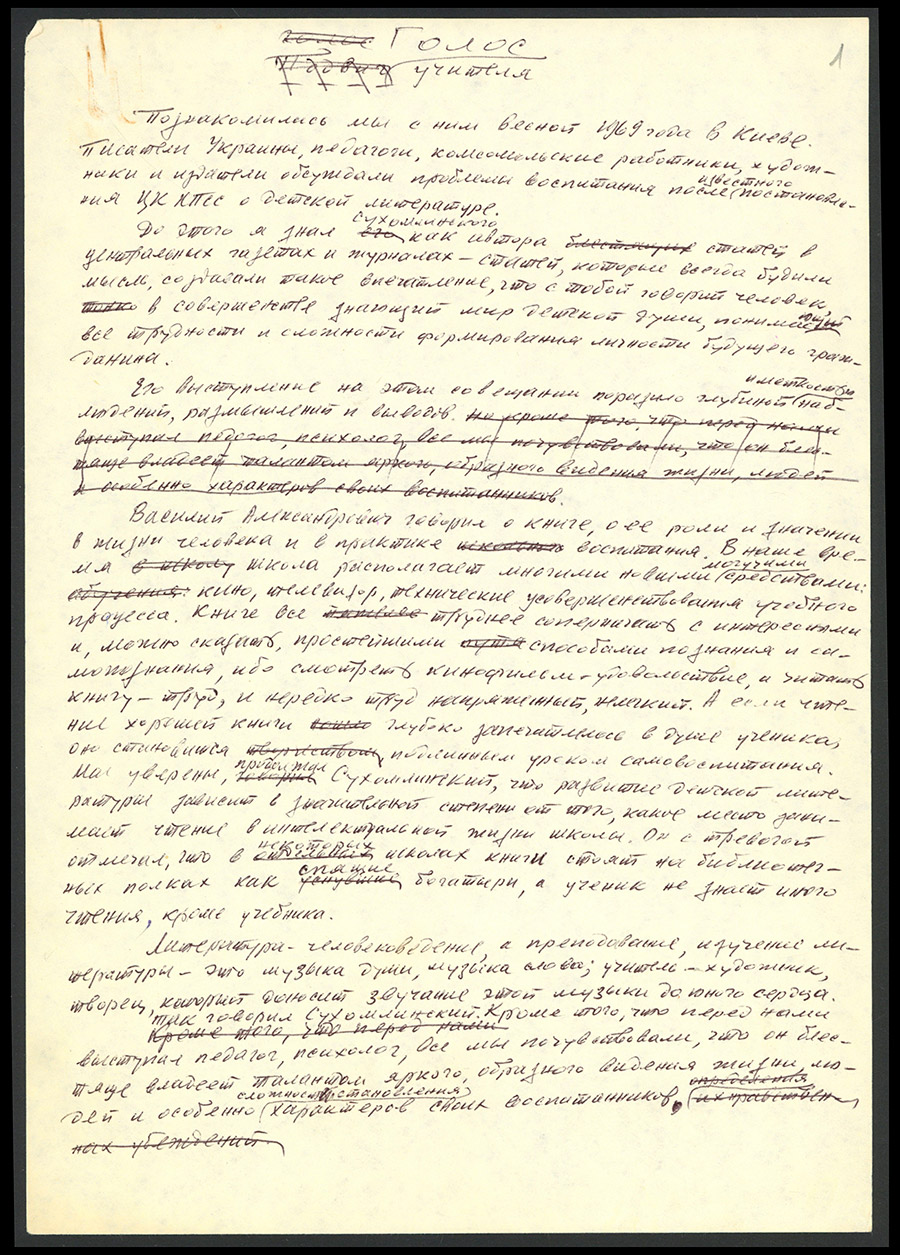 голос Голос
Подвиг учителя
1
Познакомились мы с ним весной 1969 года в Киеве.
Писатели Украины, педагоги, комсомольские работники, худож-
ники и издатели обсуждали проблемы воспитания после известного постановле-
ния ЦК КПСС о детской литературе.
До этого я знал его Сухомлинского как автора блестящих статей в
центральных газетах и журналах – статей, которые всегда будили
мысль, создавали такое впечатление, что с тобой говорит человек,
тонко в совершенстве знающий мир детской души, понимающий
все трудности и сложности формирования личности будущего граж-
данина.
Его выступление на этом совещании поразило глубиной и меткостью наб-
людений, размышлений и выводов. Но кроме того, что перед нами
выступал педагог, психолог, все мы почувствовали, что он блес-
тяще владеет талантом яркого, образного видения жизни, людей
и особенно характеров своих воспитанников.
Василий Александрович говорил о книге, о ее роли и значении
в жизни человека и в практике школьного воспитания. В наше вре-
мя в школу школа располагает многими новыми могучими средствами:
обучения: кино, телевизор, технические усовершенствования учебного
процесса. Книге все тяжелее труднее соперничать с интересными
и, можно сказать, простейшими путя способами познания и са-
мопознания, ибо смотреть кинофильм – удовольствие, а читать
книгу – труд, и нередко труд напряженный, нелегкий. А если чте-
ние хорошей книги глубоко запечатлелось в душе ученика,
оно становится творчеством, подлинным уроком самовоспитания.
Мы уверены, говорил продолжал Сухомлинский, что развитие детской лите-
ратуры зависит в значительной степени от того, какое место зани-
мает чтение в интелектуальной жизни школы. Он с тревогой
отмечал, что в отдельных некоторых школах книги стоят на библиотеч-
ных полках как уснувшие спящие богатыри, а ученик не знает иного
чтения, кроме учебника.
Литература – человековедение, а преподавание, изучение ли-
тературы – это музыка души, музыка слова; учитель – художник,
творец, который доносит звучание этой музыки до юного сердца.
Так говорил Сухомлинский. Кроме того, что перед нами
Кроме того, что перед нами
выступал педагог, психолог, все мы почувствовали, что он блес-
тяще владеет талантом яркого, образного видения жизни лю-
дей и особенно сложности становления характеров своих воспитанников, определения их нравствен-
ных убеждений.